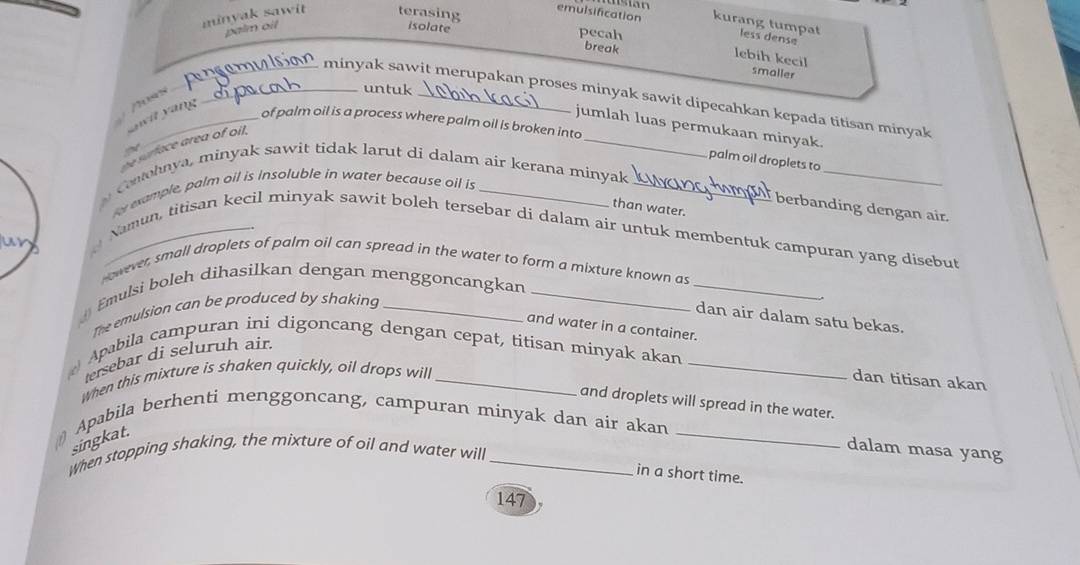 minyak sawit terasing emulsification kurang tumpat
palm oil isolate pecah less dense
break lebih kecil
smaller
Proses pengemulsian minyak sawit merupakan proses minyak sawit dipecahkan kepada titisan minyak
sawit yang dipacah untuk lebih kacil jumlah luas permukaan minyak.
The ____ of palm oil is a process where palm oil is broken into ____ palm oil droplets to ____
the surface area of oil.
Contohnya, minyak sawit tidak larut di dalam air kerana minyak kurang tumpat berbanding dengan air.
For example, palm oil is insoluble in water because oil is ____ than water.
(c) Namun, titisan kecil minyak sawit boleh tersebar di dalam air untuk membentuk campuran yang disebut
____.
However, small droplets of palm oil can spread in the water to form a mixture known as ____.
(d) Emulsi boleh dihasilkan dengan menggoncangkan ____ dan air dalam satu bekas.
The emulsion can be produced by shaking ____ and water in a container.
(e) Apabila campuran ini digoncang dengan cepat, titisan minyak akan ____ dan titisan akan
tersebar di seluruh air.
When this mixture is shaken quickly, oil drops will ____ and droplets will spread in the water.
(f) Apabila berhenti menggoncang, campuran minyak dan air akan ____ dalam masa yang
singkat.
When stopping shaking, the mixture of oil and water will ____ in a short time.
147